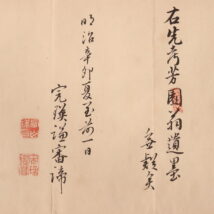 右先考芳園翁遺墨
無疑矣
明治辛卯夏至前一日
完瑛謙審諦